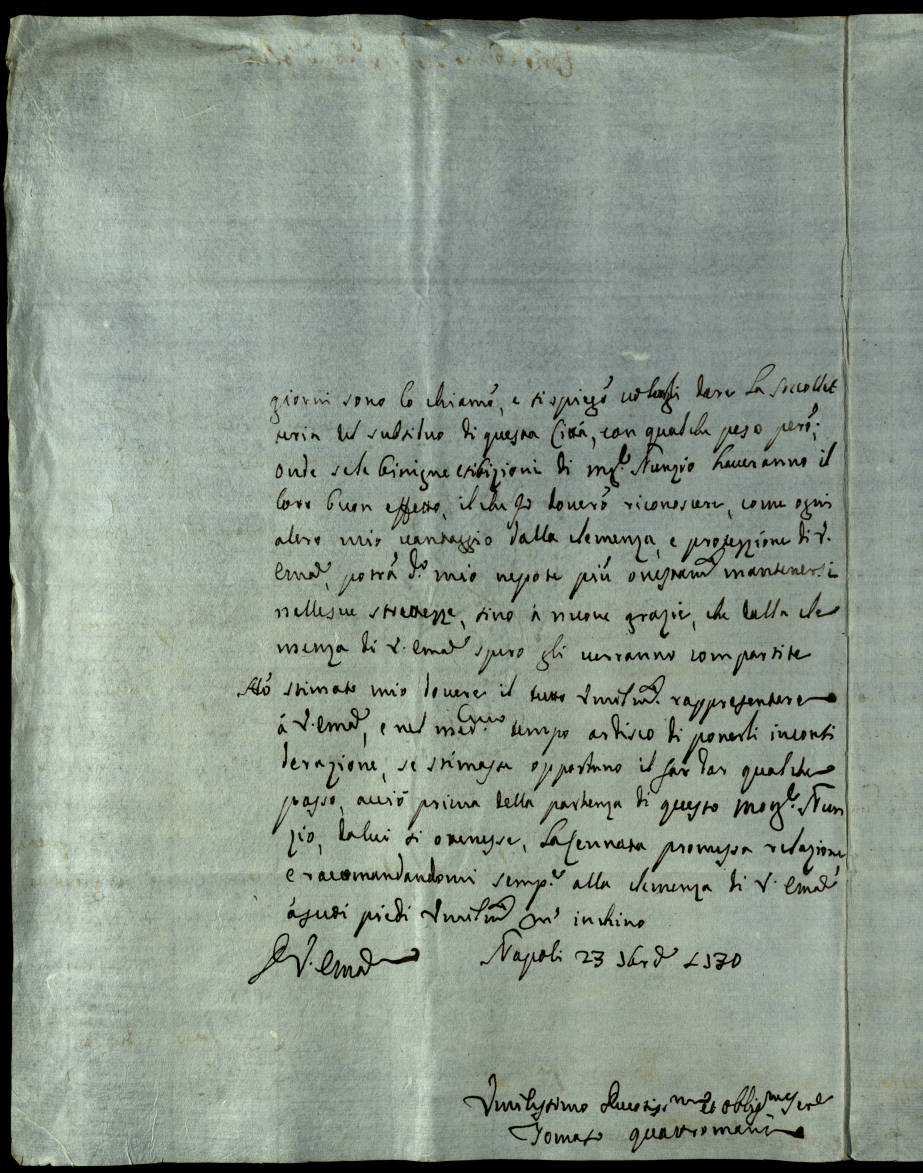 giorni sono lo chiamò, e si spiegò volergli dare la soccollet
teria del subsidio di questa Città, con qualche peso però;
onde se le benigne esibizioni di mg.r Nunzio haveranno il
loro buon effetto, il che Io doverò riconoscere, come ogni
altro mio vantaggio dalla clemenza, e protezzione di V.
Emza, potrà d.o mio nepote più onestam.te mantenersi
nelle sue strettezze, sino a nuove grazie, che dalla cle
menza di V. Emza spero gli verranno compartite
Hò stimato mio dovere il tutto Umilm.te rappresentare
à V. Emza, e nel med.mo tempo ardisco di ponerli in consi
derazione, se stimasse opportuno il far dar qualche
passo, acciò prima della partenza di questo mong.r Nun
zio, da lui si ottenesse, la cennata promessa relazione,
e racomandandomi semp.e alla clemenza di V. Emza
à suoi piedi Umilm.te m' inchino
D V. Emza Napoli 23 Xbre 1730
Umilissimo Devotiss.mo et obblig.mo Ser.e
Tomaso Quattromani